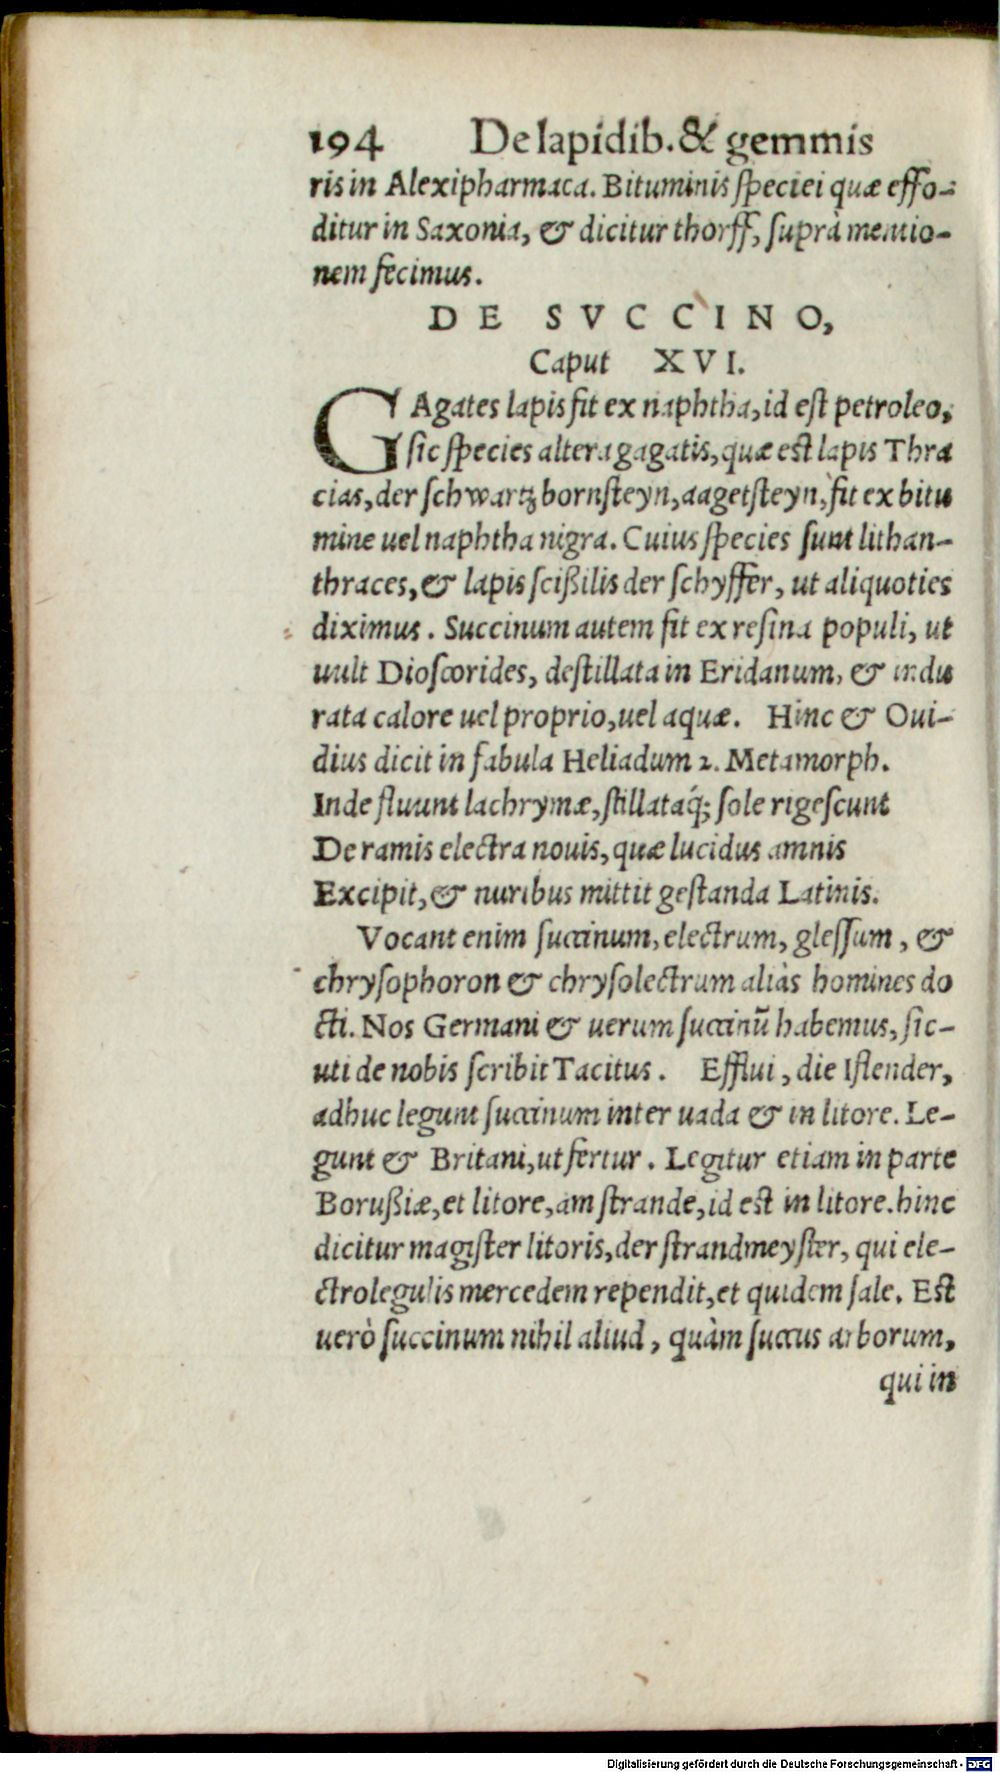 194 De lapidib. & gemmis
ris in Alexipharmaca. Bituminis speciei quæ effo-
ditur in Saxonia, & dicitur thorff, suprà mentio-
nem fecimus.
DE SVCCINO,
Caput XVI.
GAgates lapis fit ex naphtha, id est petroleo,
sic species altera gagatis, quæ est lapis Thra
cias, der schwartz bornsteyn, aagetsteyn, fit ex bitu
mine uel naphtha nigra. Cuius species sunt lithan-
thraces, & lapis scißilis der schyffer, ut aliquoties
diximus. Succinum autem fit ex resina populi, ut
uult Dioscorides, destillata in Eridanum, & indu
rata calore uel proprio, uel aquæ. Hinc & Oui-
dius dicit in fabula Heliadum 2. Metamorph.
Inde fluunt lachrymæ, stillataq́; sole rigescunt
De ramis electra nouis, quæ lucidus amnis
Excipit, & nuribus mittit gestanda Latinis.
Vocant enim succinum, electrum, glessum, &
chrysophoron & chrysolectrum aliàs homines do
cti. Nos Germani & uerum succinū habemus, sic-
uti de nobis scribit Tacitus. Efflui, die Iflender,
adhuc legunt succinum inter uada & in litore. Le-
gunt & Britani, ut fertur. Legitur etiam in parte
Borußiæ, et litore, am strande, id est in litore. hinc
dicitur magister litoris, der strandmeyster, qui ele-
ctrolegulis mercedem rependit, et quidem sale. Est
uerò succinum nihil aliud, quàm succus arborum,
qui in
Digitalisierung gefördert durch die Deutsche Forschungsgemeinschaft - DFG